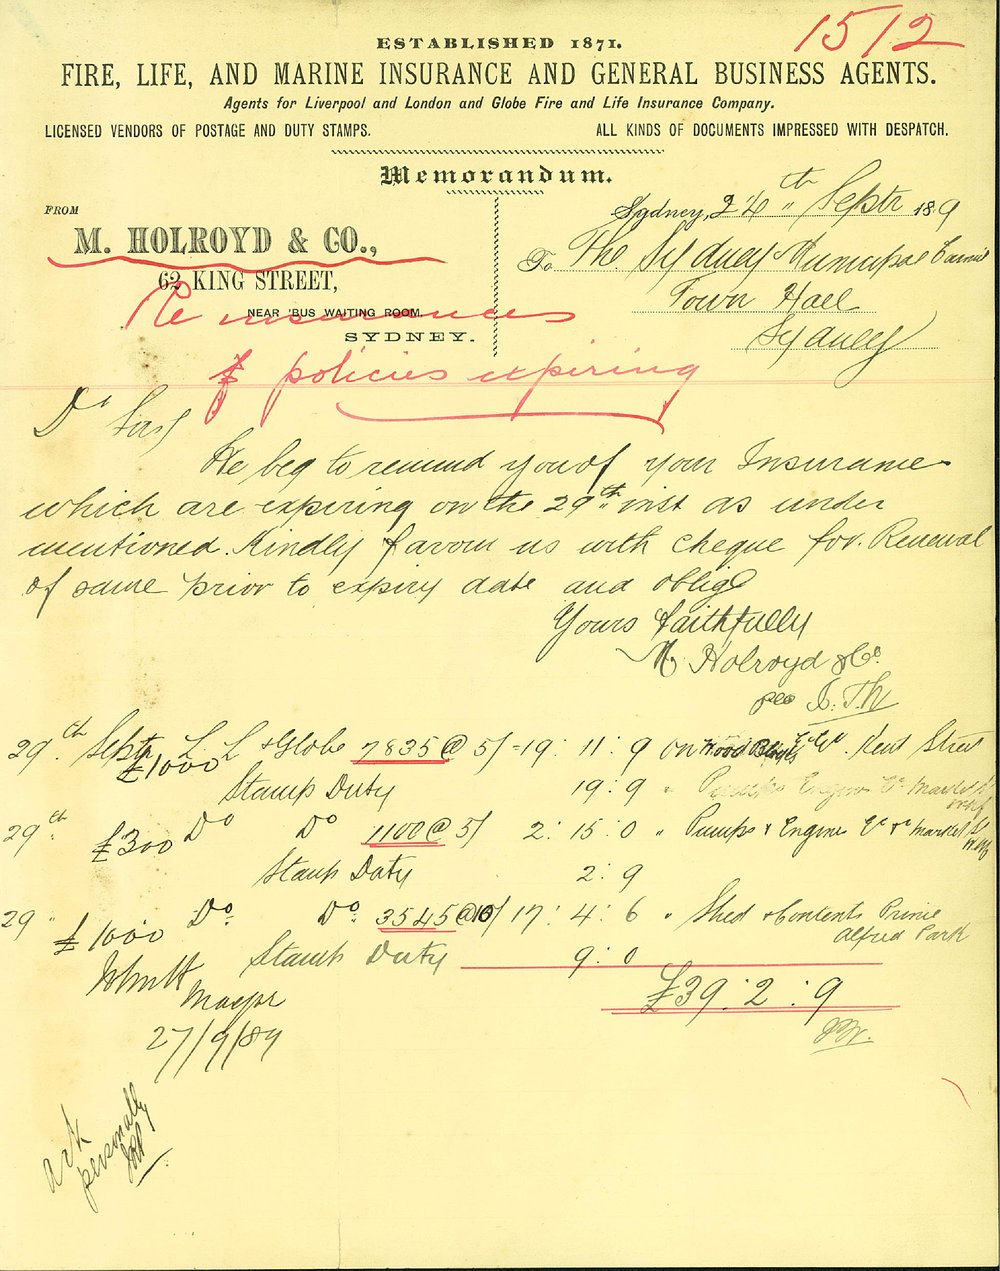 1512
ESTABLISHED 1871.
FIRE, LIFE, AND MARINE INSURANCE AND GENERAL BUSINESS AGENTS.
Agents for Liverpool and London and Globe Fire and Life Insurance Company.
LICENSED VENDORS OF POSTAGE AND DUTY STAMPS.
ALL KINDS OF DOCUMENTS IMPRESSED WITH DESPATCH.
Memorandum.
FROM
M. HOLROYD & CO.,
62 KING STREET,
NEAR 'BUS WAITING ROOM,
SYDNEY.
Sydney, 24th Septr 189
To The Sydney Municipal
Town Hall
Sydney
Re insurances
policies expiring
Dr Sirs
We beg to remind you of your Insurance
which are expiring on the 29th inst as under
mentioned. Kindly favour us with cheque for Renewal
of same prior to expiry date and oblige
Yours faithfully
M Holroyd & Co.
29th Septr L L & Globe 7835 @ 5/ = 19: 11: 9 on Wood Blocks Kent Street
£1000
Stamp Duty 19: 9 " Pumps Engine Market
29th £300 Do Do 1100 @ 5/ 2: 15: 0 " Pumps & Engine Market St
Whf
Stamp Duty 2: 9
29 " £1000 Do. Do. 3545 @ 10/ 17: 4: 6 " Shed & Contents Prince
Alfred Park
Stamp Duty 9: 0
£39: 2: 9
Mayor
27/9/89
Ack
personally